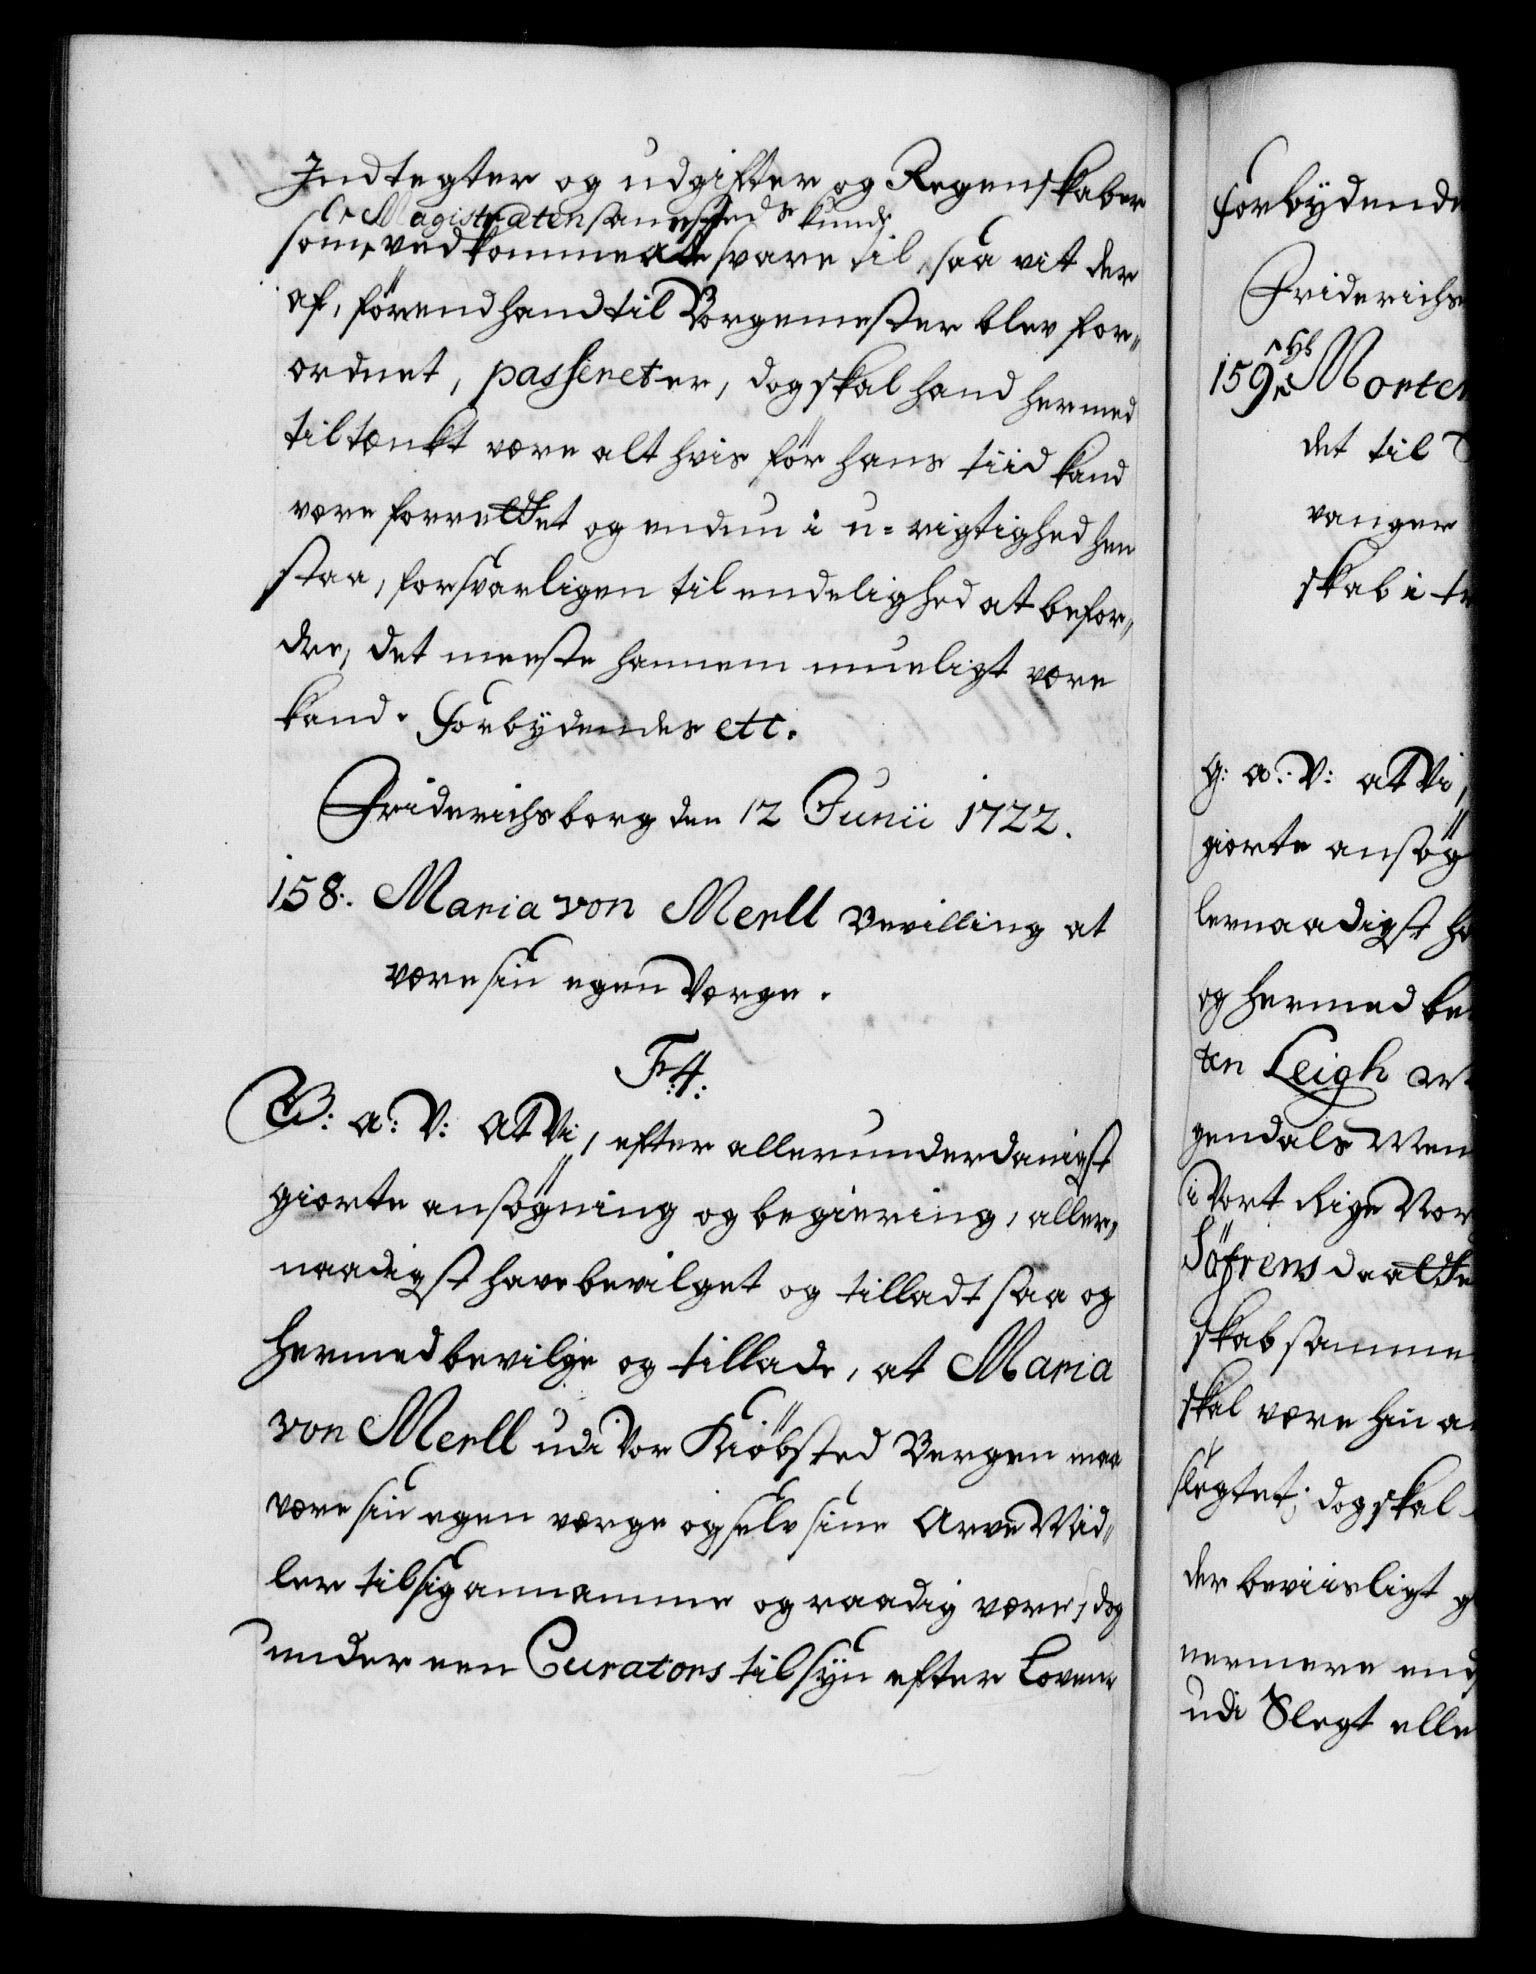 Indtegter og udgifter og Regenskaber
Magistraten sammesteds kunde
som vedkomme at svare til, saa vit der
af, förend hand til Borgemester blev for,,
ordnet, passeret er, dog skal hand hermed
tiltænkt være alt hvis för hans tiid kand
være forrettet og endnu i u-rigtighed hen
staa, forsvarligen til endelighed at befor,,
dre, det meeste hannem mueligt være
kand. Forbÿdendes etc.
Friderichsborg den 12 Junii 1722.
158. Maria von Merll Bevilling at
være sin egen Værge.
F: 4:
G: a: V: at Vi, efter allerunderdanigst
giorte ansögning og begiering, aller,,
naadigst have bevilget og tilladt saa og
hermed bevilge og tillade, at Maria
von Merll udi Vor Kiöbsted Bergen maa
være sin egen værge og selv sine Arve Mid,,
ler til sig annamme og raadig være, dog
under een Curators tilsÿn efter Loven.
Forbÿdende
Friderichs
159. Morten
det til
vanger
skab i
g: a: V: at Vi,
giorte ansög
lernaadigst ha
og hermed be
ten Leigh
gendals
i Vort Rige Nor
Söfrens daatte
skab samme
skal være hin a
slegtet; dog skal
der beviisligt g
nermere end
udi Slegt elle